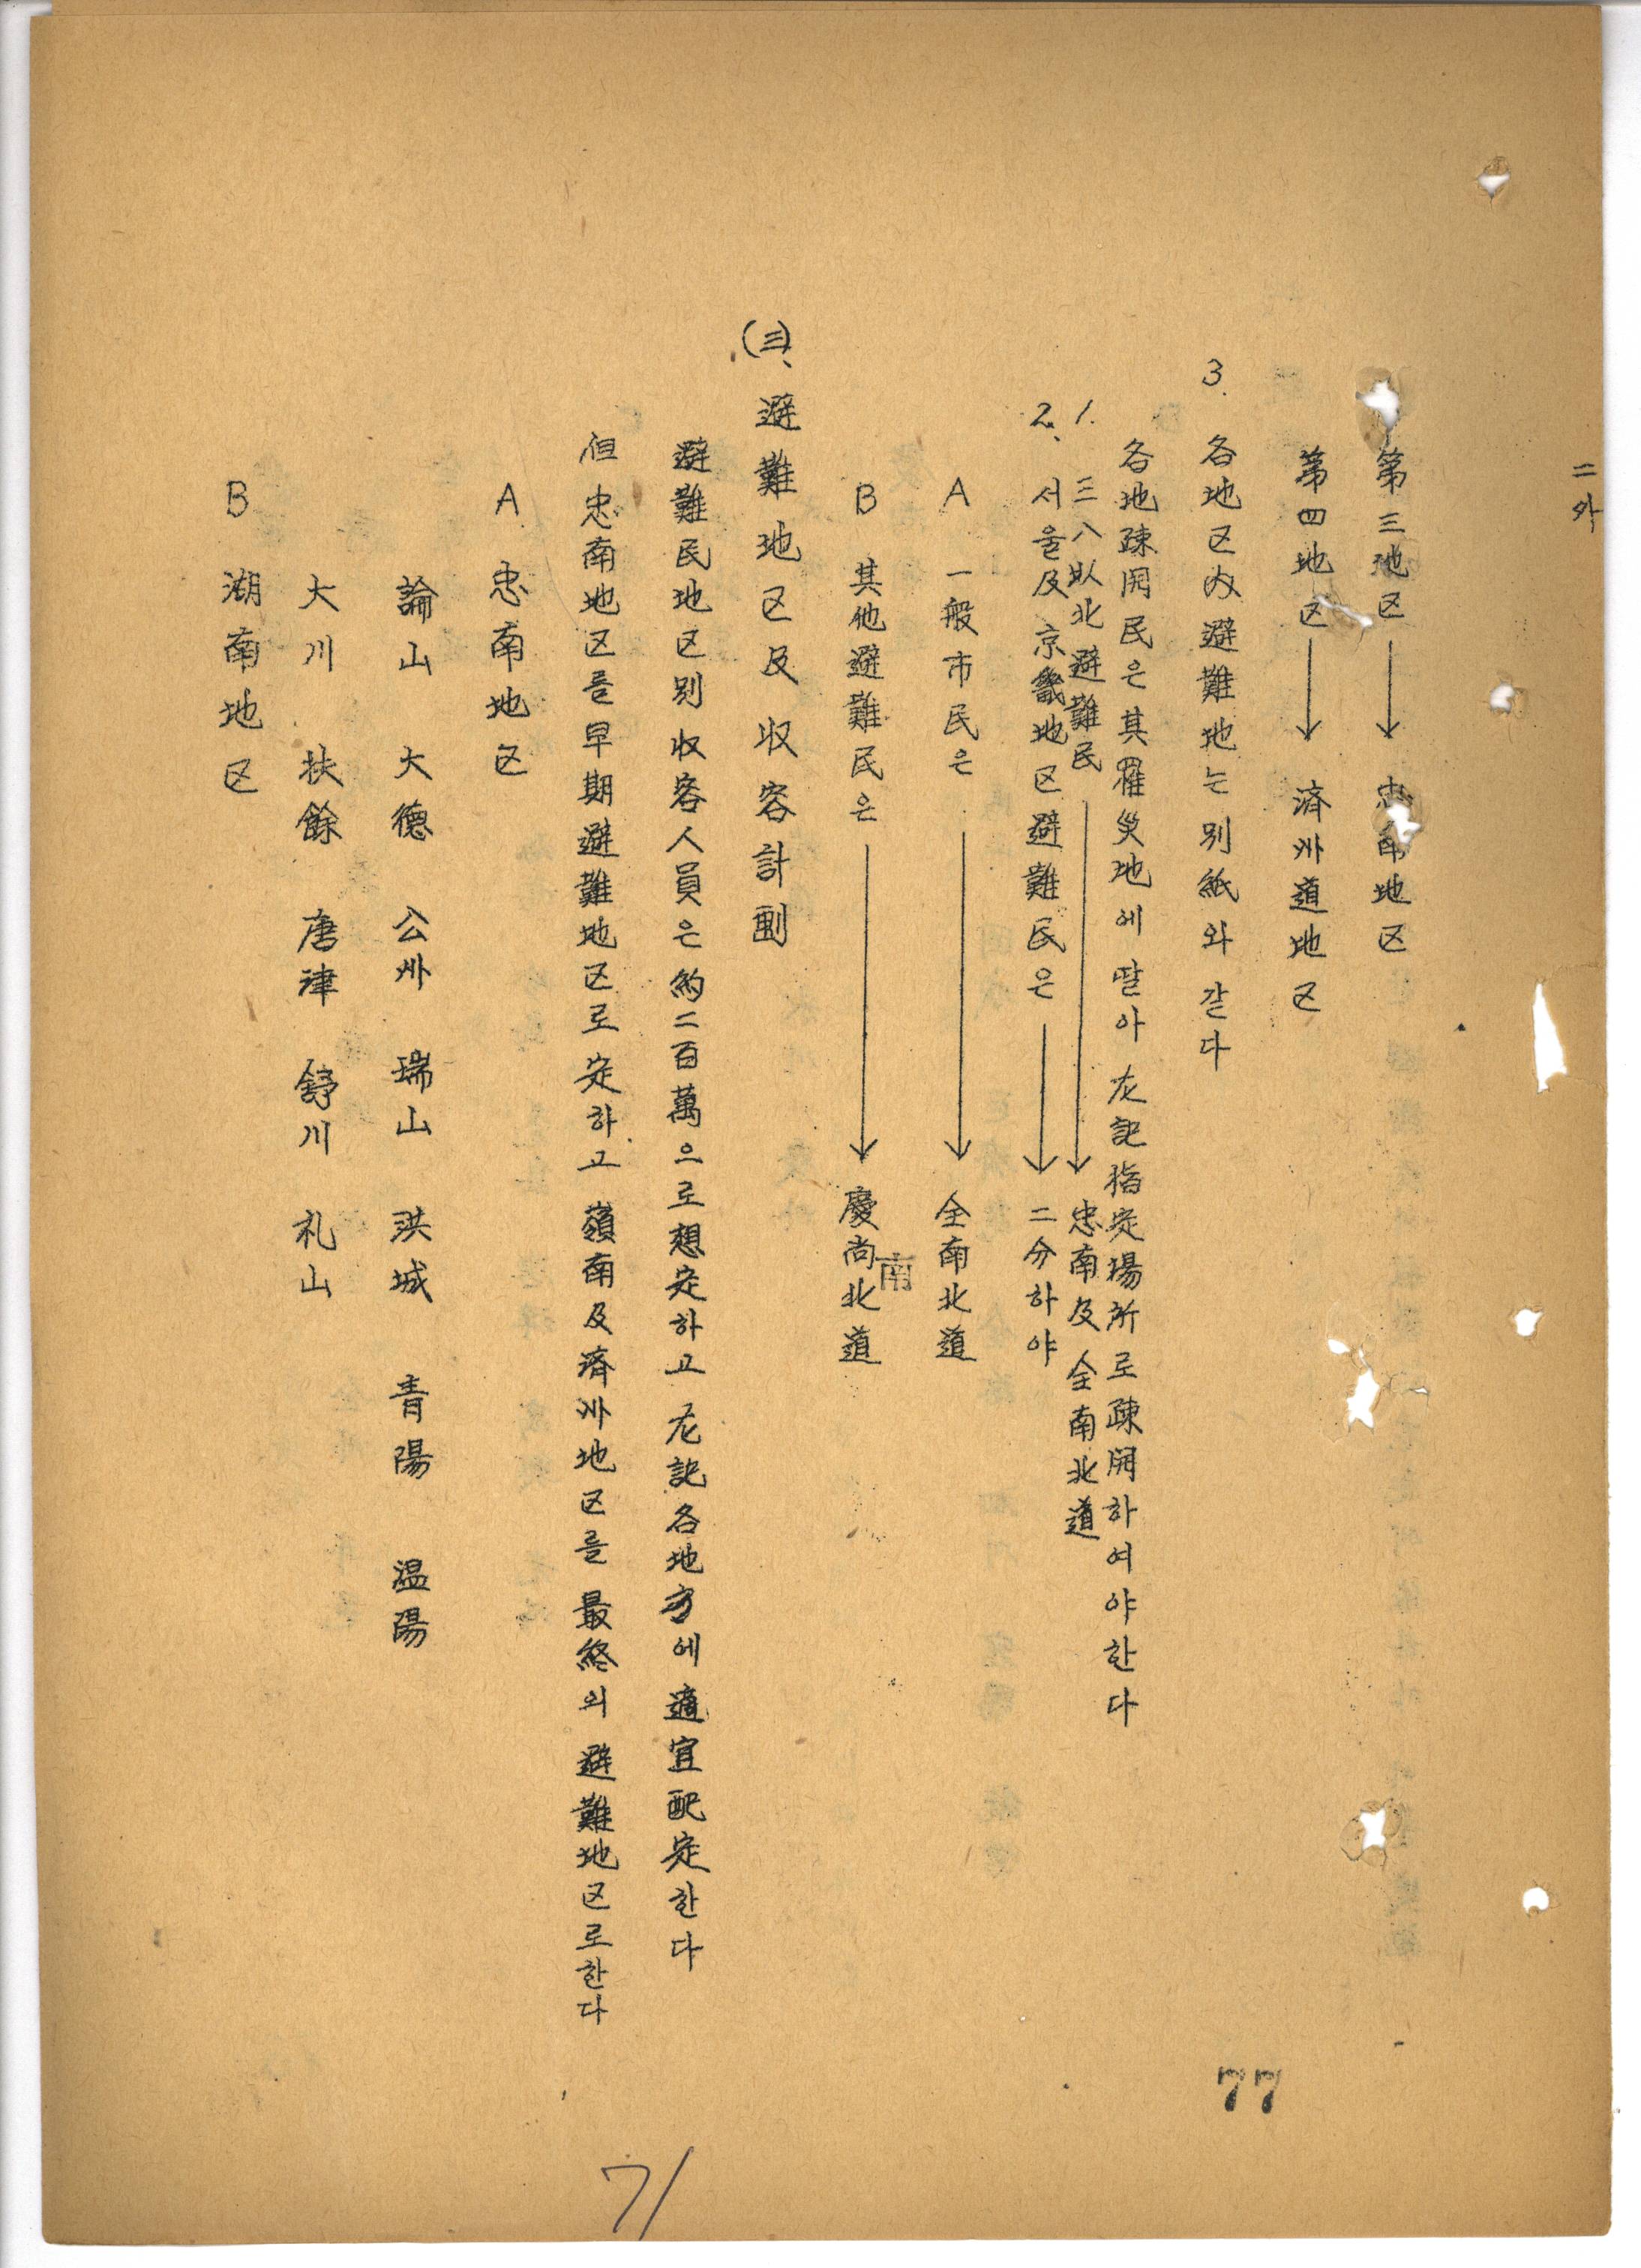 二外
第三地区→忠南地区
第四地区→済州道地区
3. 各地区内避難地는別紙와갇다
各地疎開民은其罹災地에딸아左記指定場所로疎開하여야한다
1. 三八以北避難民→忠南及全南北道
2、서울及京畿地区避難民은→二分하야
A 一般市民은→全南北道
B 其他避難民은→慶尚北道
南
(三)、避難地区及収容計劃
避難民地区別収容人員은約二百萬으로想定하고左記各地方에適宜配定한다
但忠南地区를早期避難地区로定하고嶺南及済州地区를最終의避難地区로한다
A 忠南地区
論山 大德 公州 瑞山 洪城 青陽 温陽
大川 扶餘 唐津 舒川 礼山
B 湖南地区
77
71